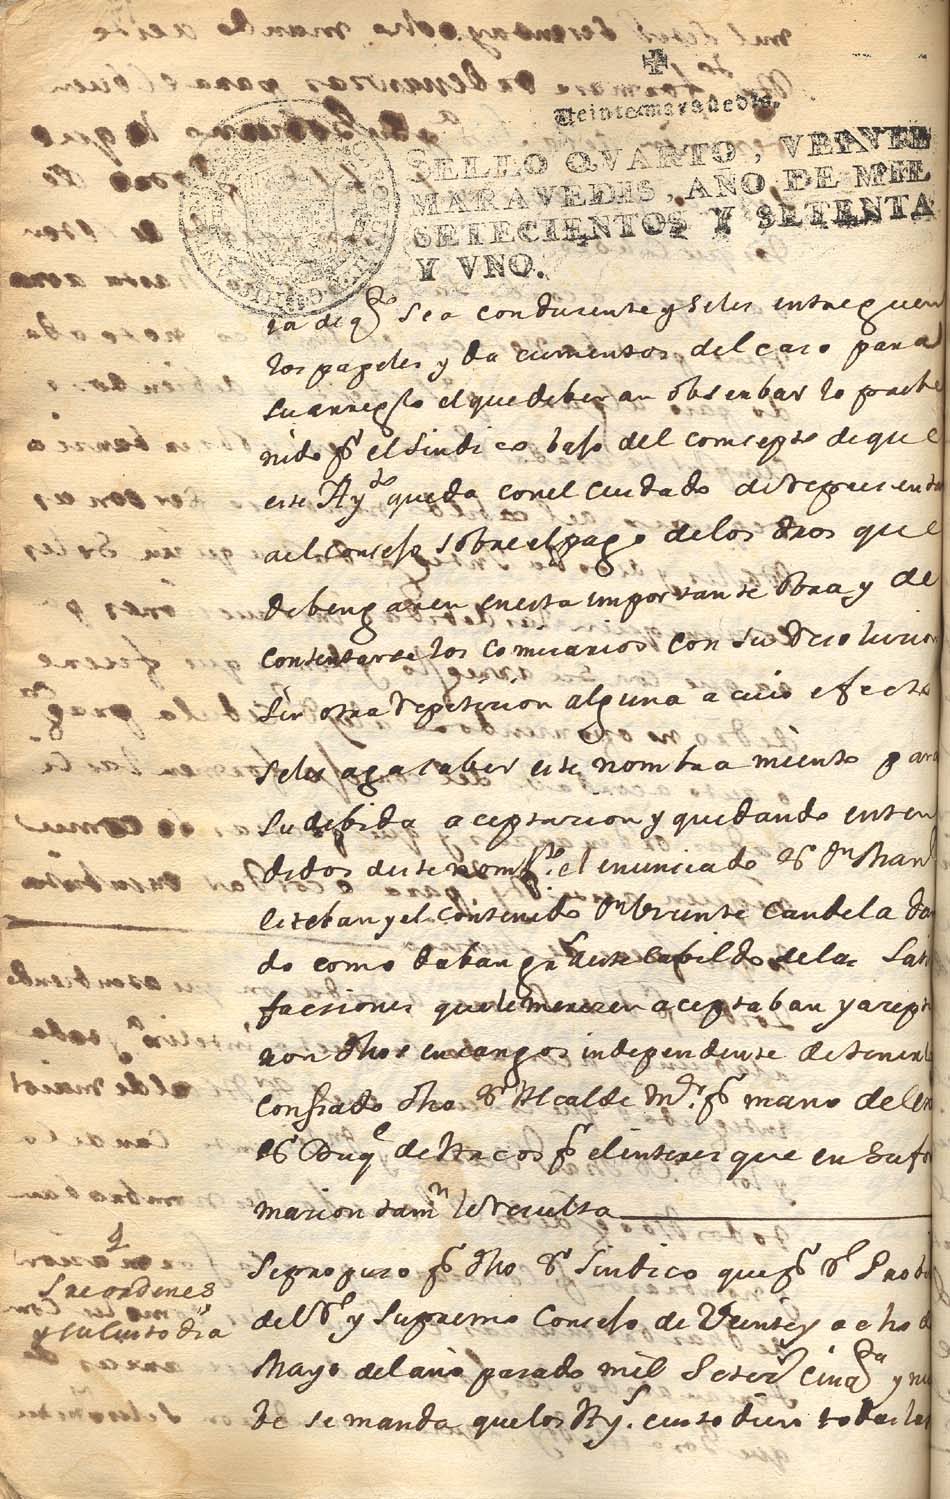 Veinte maravedis.
SELLO QVARTO, VEINTE
MARAVEDIS, AÑO DE MIL
SETECIENTOS Y SETENTA
Y VNO.
ra de q.e sea condusente y seles entreguen
los papeles y documentos del caso para
su arreglo el que deberan observar lo preve
nido p.r el Sindico baso del comsepto de que
este Ay.to queda con el cuidado de represen
al Conseso sobre el pago delos dros que
debengaren en esta importante obra y de
contentarse los Comisarios con su resolucion
sin otra repeticion alguna a cuio efecto
seles aga saber este nombramiento para
su debida aceptacion y quedando enten
didos deste nomb.to el enunciado S.r D.n Man.l
Esteban y el contenido D.n Vicente Candela da
do como daban gr.s a este Cabildo dela Satis
facsiones que le merecen aceptaban y acepta
ron dhos encargos independente de tener
confiado dho S.r Alcalde M.r p.r mano del
S.r Duq.e de Arcos p.r el interes que en su
macion tam.n le resulta
Se propuso p.r dho S.r Sindico que p.r R.l Prob
del R.l y Supremo Conseso de Veinte y ocho de
Mayo del año pasado mil Setec.s cinq.ta y nu
be se manda que los Ay.s custodien todas las
4
Sre ordenes
y su custodia